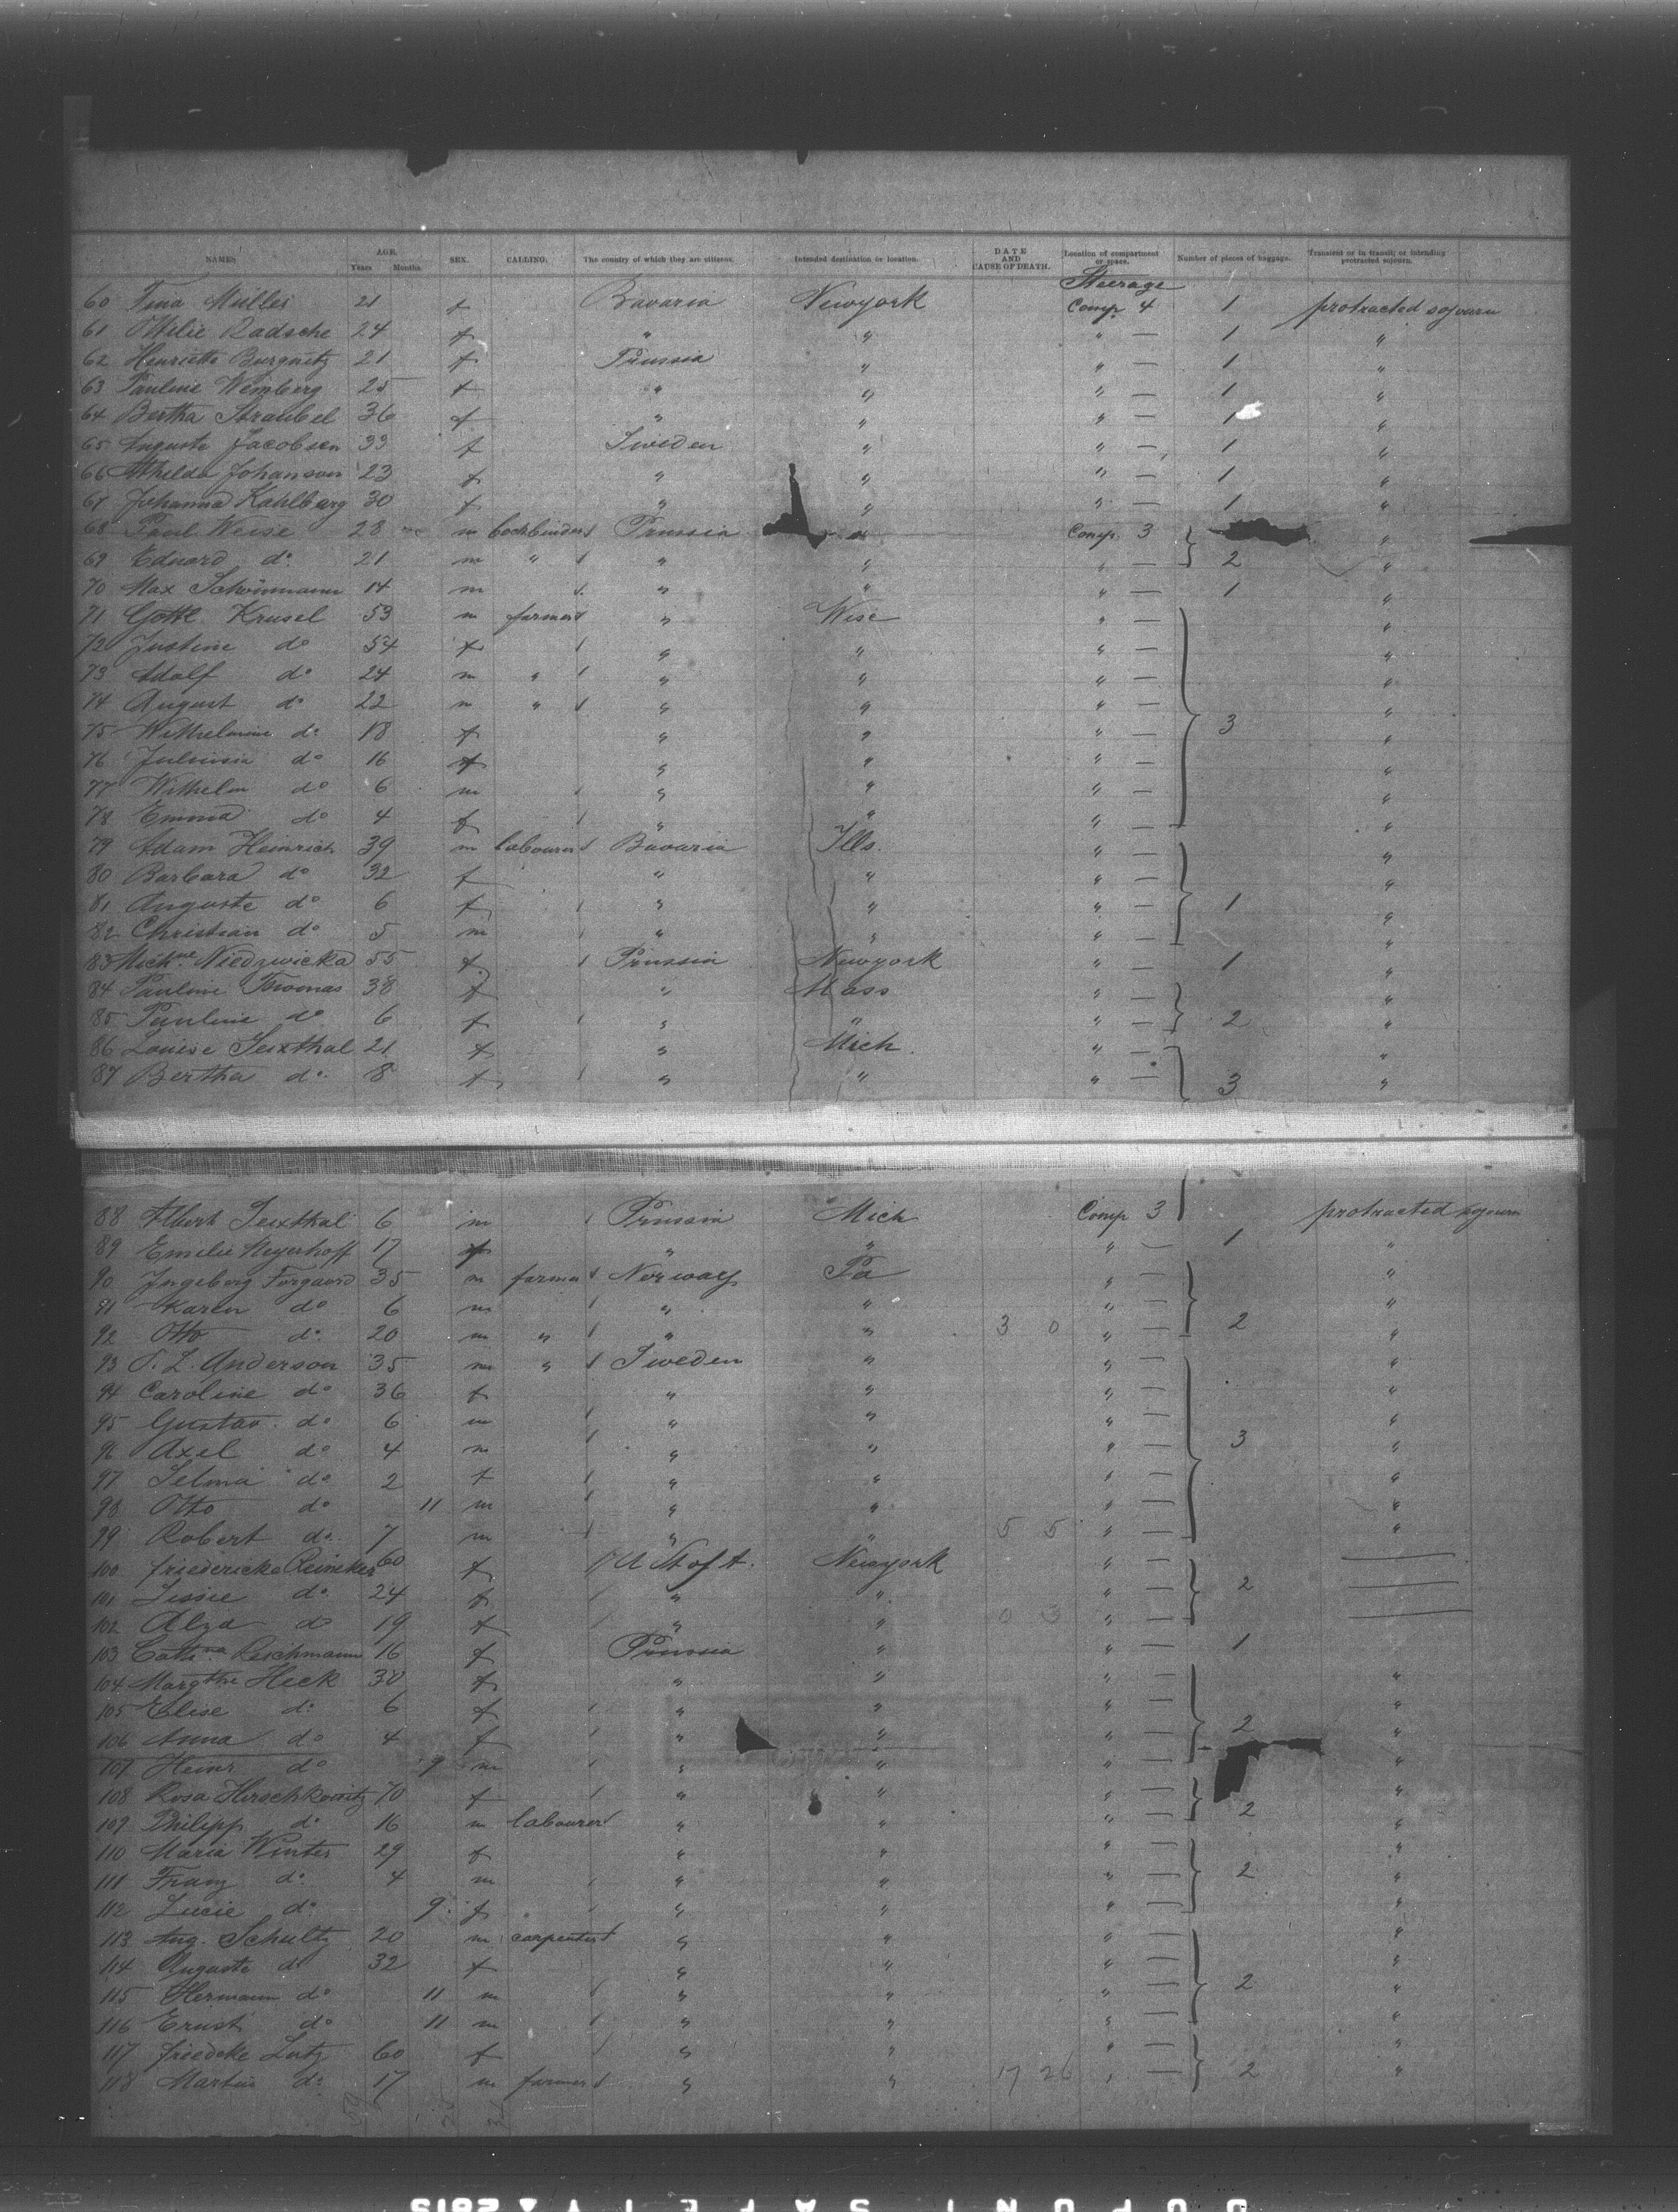 NAMES AGE. Years Months SEX. CALLING. The country of which they are citizens. Intended destination or location. DATE AND CAUSE OF DEATH. Location of compartment or space. Number of pieces of baggage. Transient or in transit; or intending protracted sojourn.
Steerage
60 Tina Müller 21 f Bavaria Newyork Comp. 4 1 protracted sojourn
61 Ottilie Radsche 24 f " " " — 1 "
62 Henriette Burgnitz 21 f Prussia " " — 1 "
63 Pauline Weinberg 25 f " " " — 1 "
64 Bertha Straubel 36 f " " " — 1 "
65 Auguste Jacobsen 33 f Sweden " " — 1 "
66 Mthilda Johanson 23 f " " " — 1 "
67 Johanna Kahlberg 30 f " " " — 1 "
68 Paul Weise 28 m bookbinder Prussia " Comp. 3 "
69 Eduard do 21 m " " " " — 2 "
70 Max Schönmann 14 m " " " — 1 "
71 Gottl. Krusel 53 m farmer " Wisc " — "
72 Justine do 54 f " " " — "
73 Adolf do 24 m " " " " — "
74 August do 22 m " " " " — "
75 Wilhelmine do 18 f " " " — 3 "
76 do 16 f " " " — "
77 Wilhelm do 6 m " " " — "
78 Emma do 4 f " " " — "
79 Adam Heinrich 39 m labourer Bavaria Ills. " — "
80 Barbara do 32 f " " " — "
81 Auguste do 6 f " " " — 1 "
82 Christian do 5 m " " " — "
83 Michne Niedzwicka 55 f Prussia Newyork " — 1 "
84 Pauline Thomas 38 f " Mass " — "
85 Pauline do 6 f " " " — 2 "
86 Louise Seixthal 21 f " Mich. " — "
87 Bertha do 8 f " " " — 3 "
88 Albert Seixthal 6 m Prussia Mich Comp 3 protracted sojourn
89 Emilie Meyerhoff 17 f " " " — 1 "
90 Ingeborg Forgaard 35 m farmer Norway Pa " — "
91 Karen do 6 m " " " — "
92 Otto do 20 m " " " 3 0 " — 2 "
93 S. L. Anderson 35 m " Sweden " " — "
94 Caroline do 36 f " " " — "
95 Gustav. do 6 m " " " — "
96 Axel do 4 m " " " — 3 "
97 Selma do 2 f " " " — "
98 Otto do 11 m " " " — "
99 Robert do 7 m " " 5 5 " — "
100 Friedericke Reinecker 60 f U St of A. Newyork " —
101 Lissie do 24 f " " " — 2
102 Alza do 19 f " " 0 3 " —
103 Cathna Reichmann 16 f Prussia " " — 1
104 Margthe Heck 30 f " " " — "
105 Elise do 6 f " " " — "
106 Anna do 4 f " " " — 2 "
107 Heinr. do 9 m " " " — "
108 Rosa Herschkowitz 70 f " " " — "
109 Philipp do 16 m labourer " " " — 2 "
110 Maria Winter 29 f " " " — "
111 Franz do 4 m " " " — 2 "
112 Lucie do 9 f " " " — "
113 Aug. Schultz 20 m carpenter " " " — "
114 Auguste do 32 f " " " — "
115 Hermann do 11 m " " " — 2 "
116 Ernst do 11 m " " " — "
117 Friedcke Lutz 60 f " " " — "
118 Martin do 17 m farmer " " 17 26 " — 2 "